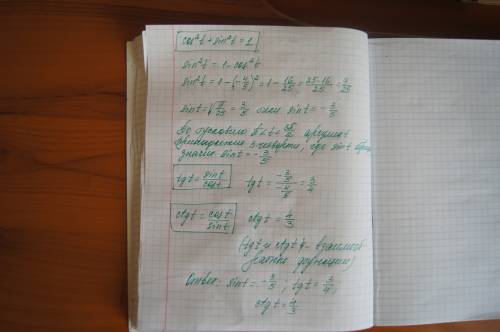 cos²t + sin²t = 1
sin²t = 1 - cos²t
sin²t = 1 - (-4/5)² = 1 - 16/25 = (25-16)/25 = 9/25
sint = √9/25 = 3/5 или sint = -3/5
По условию аргумент
3 четверти, где sint
значит sint = -3/5
tgt = sint/cost tgt = (-3/5)/(-4/5) = 3/4
ctgt = cost/sint ctgt = 4/3
(tgt и ctgt - взаимооб-
ратные функции)
Ответ: sint = -3/5; tgt = 3/4;
ctgt = 4/3